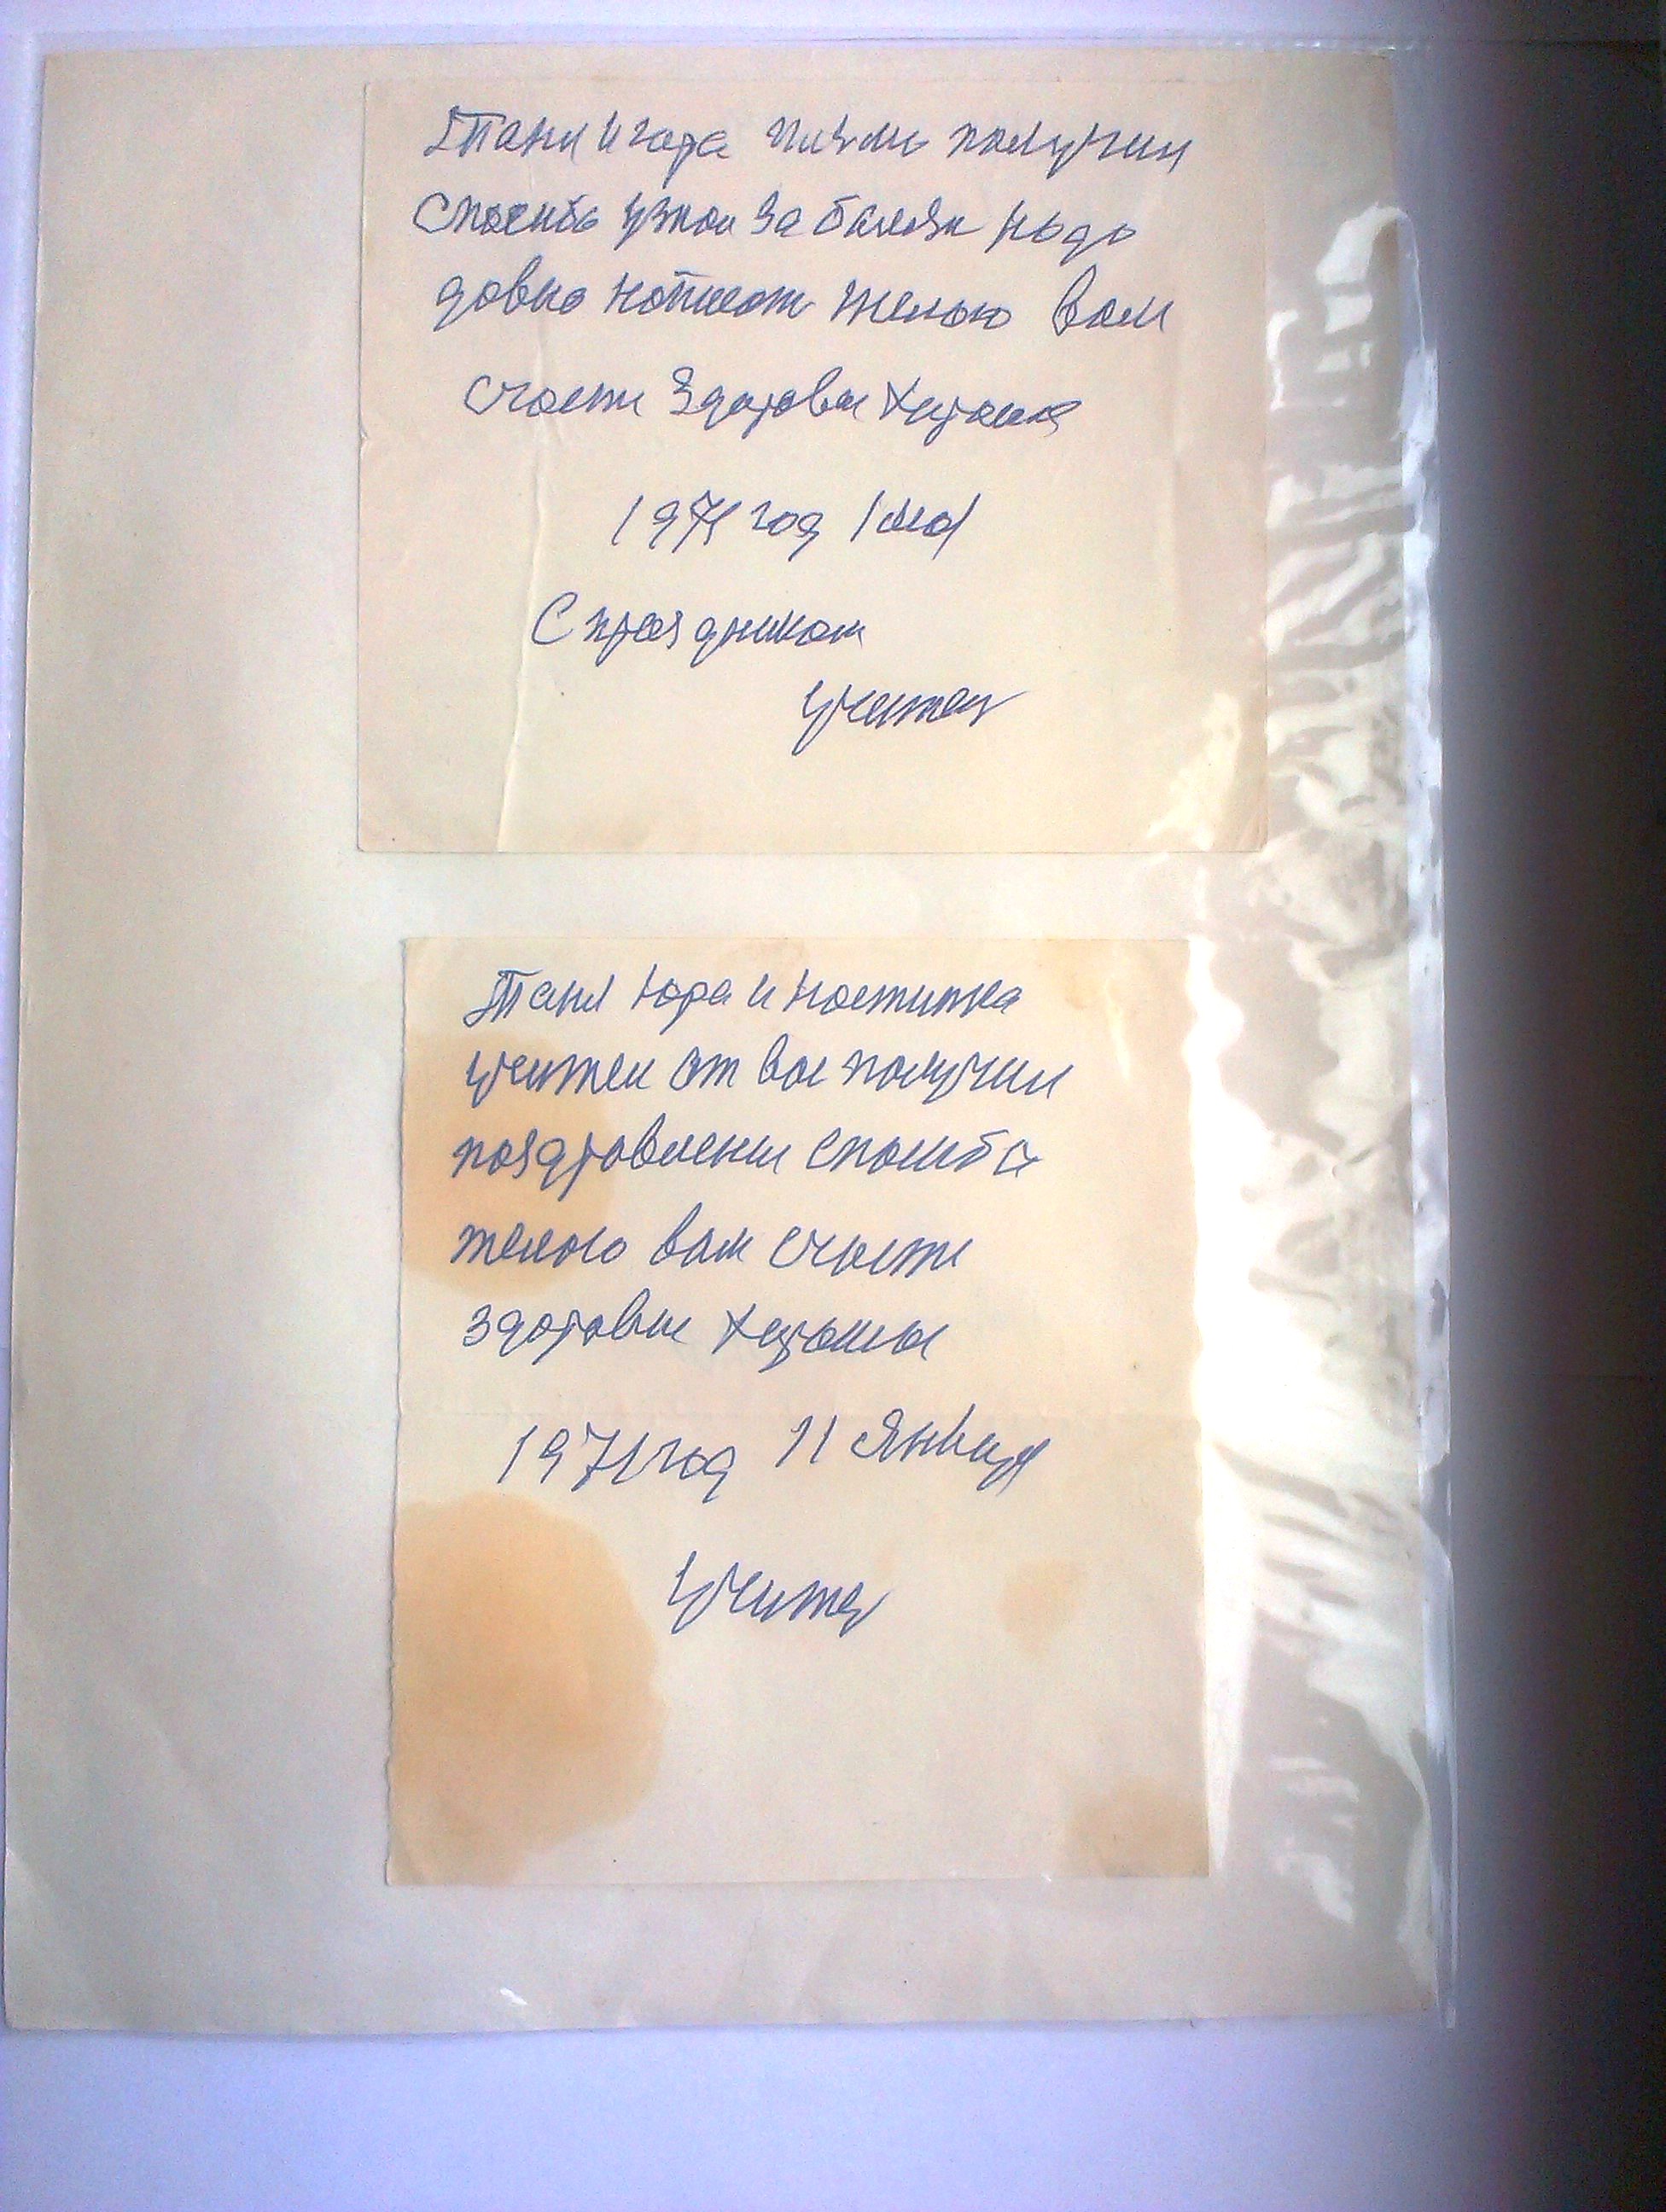 Тани Игора писмо получил
спосибо узнол за болезн надо
довно нописот желою вам
счости здоровы хорошо
1971 год 1 мая
С праздником
Учител
Таня Юра и Коститка
Учител от вос получил
поздровлени спошиба
желою вам счости
здоровы хорошо
1971 год 11 Январ
Учител